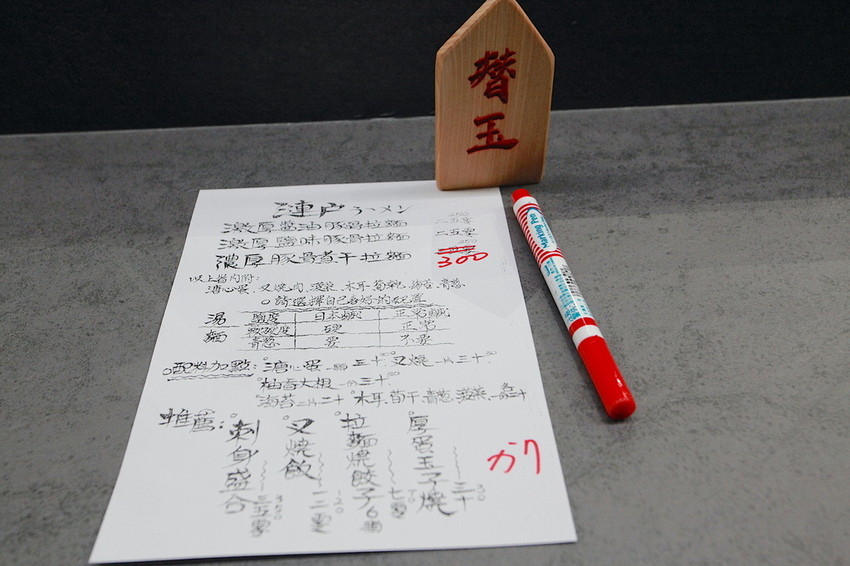 替玉
漣戶ラーメン
濃厚醬油豚骨拉麵 250 二五零
濃厚鹽味豚骨拉麵 二五零
濃厚豚骨煮干拉麵 300
以上皆內附:
溏心蛋、叉燒肉、菠菜、木耳、筍乾、海苔、青蔥
○請選擇自己喜好的
湯 鹽度 日本 正常
麵 軟硬度 硬 正常
青蔥 要 不要
○配料加點: 溏心蛋 五十 叉燒一片三十
柚香大根 一份三十
海苔 二片二十 木耳、筍干、青蔥、菠菜
推薦:
厚蛋玉子燒 三十 30
拉麵燒餃子6個 七零 70
叉燒飯 一二零 120
刺身盛合 三五零 350
かり